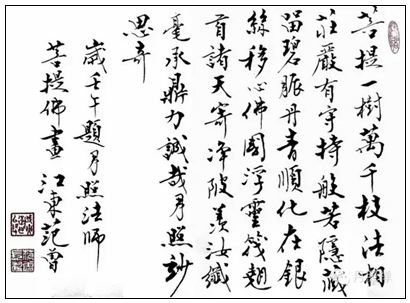 菩提一樹萬千枝法相
莊嚴有宇持般若隱藏
留碧脈丹青順化在銀
絲移心佛國浮靈筏翹
首諸天寄淨陂羨汝纖
毫承鼎力誠哉月照妙
思奇
歲壬午題月照法師
菩提佛畫 江東范曾